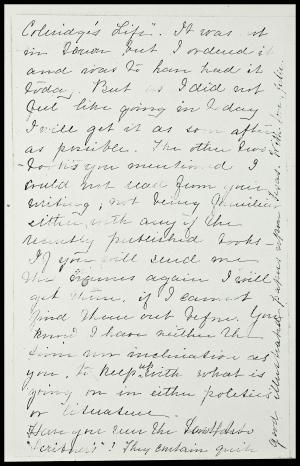 Coleridge's Life". It was not
in town but I ordered it
and was to have had it
today. But as I did not
feel like going in today
I will get it as soon after
as possible. The other two
books you mentioned I
could not read from your
writing, not being familiar
either with any of the
recently published books—
If you will send me
the names again I will
get them, if I cannot
find them out before. You
know I have neither the
time nor inclination as
you, to keep up with what is
going on in either politics
or literature.
Have you seen the
"Scribner's"? They contain quite
good illustrated papers upon